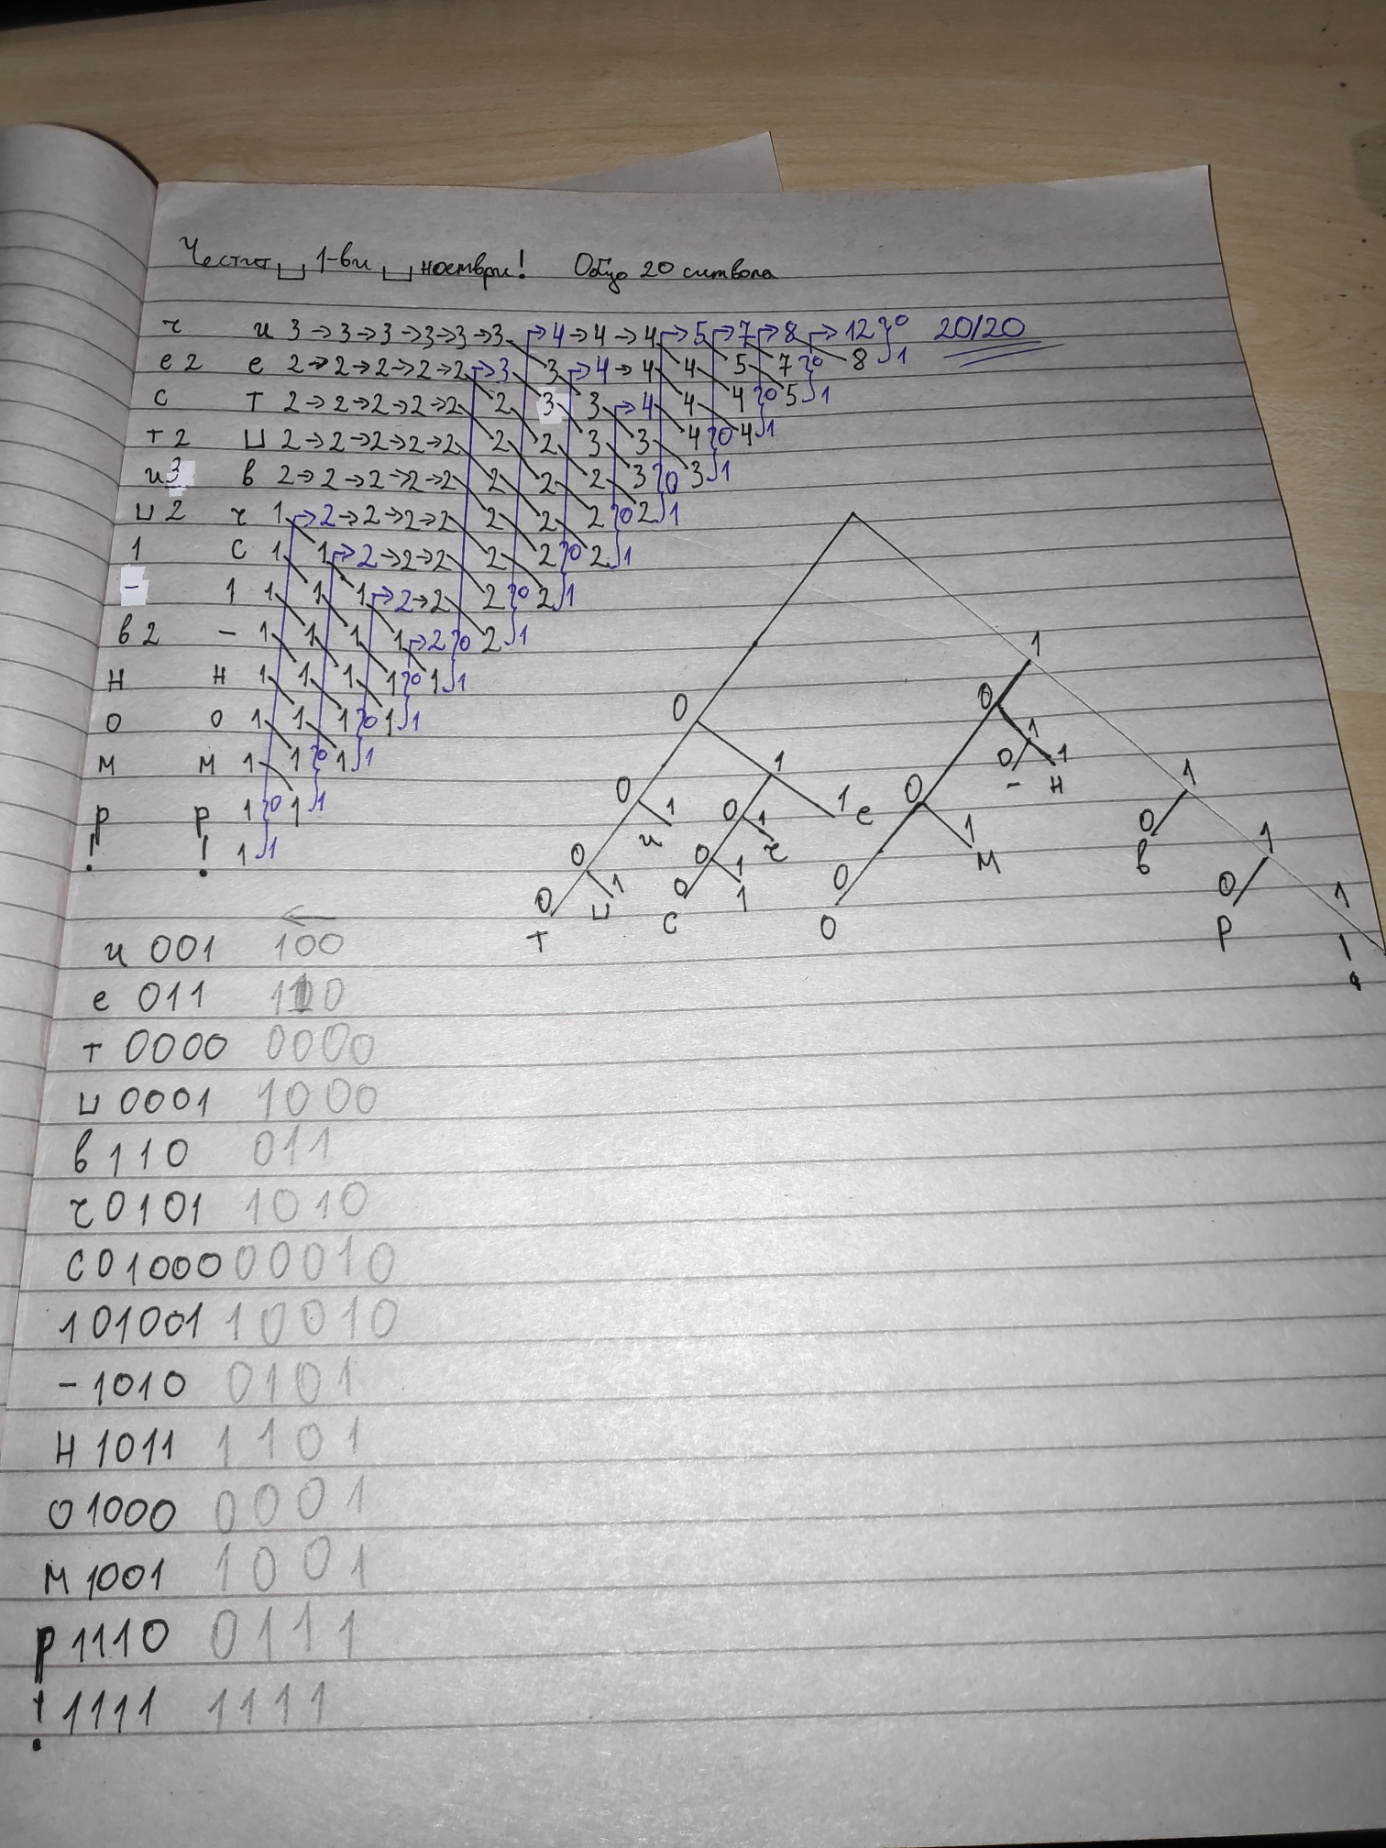 Честит␣1-ви␣ноември! Общо 20 символа
ч и 3→3→3→3→3→3 →4→4→4 →5 →7 →8 →12 }0 20/20
е 2 е 2→2→2→2→2 →3 3 →4→4 4 5 7 }0 8 1
с т 2→2→2→2→2 2 3 3 →4 4 4 }0 5 1
т 2 ␣ 2→2→2→2→2 2 2 3 3 4 }0 4 1
и 3 в 2→2→2→2→2 2 2 2 3 }0 3 1
␣ 2 ч 1 →2→2→2→2 2 2 2 }0 2 1
1 с 1 1 →2→2→2 2 2 }0 2 1
- 1 1 1 1 →2→2 2 }0 2 1
в 2 - 1 1 1 1 →2 }0 2 1
н н 1 1 1 1 }0 1 1
о о 1 1 1 }0 1 1
м м 1 1 }0 1 1
р р 1 }0 1 1
! ! 1 1
1
0 0
0 1 0 1 1
0 1 0 1 1 е 0 - 1 н 0 1
и ч в
0 0 1 0 1 м 0 1
0 1 0 1 0 р 1
т ␣ с 1 о !
и 001 100
е 011 110
т 0000 0000
␣ 0001 1000
в 110 011
ч 0101 1010
с 01000 00010
1 01001 10010
- 1010 0101
н 1011 1101
о 1000 0001
м 1001 1001
р 1110 0111
! 1111 1111